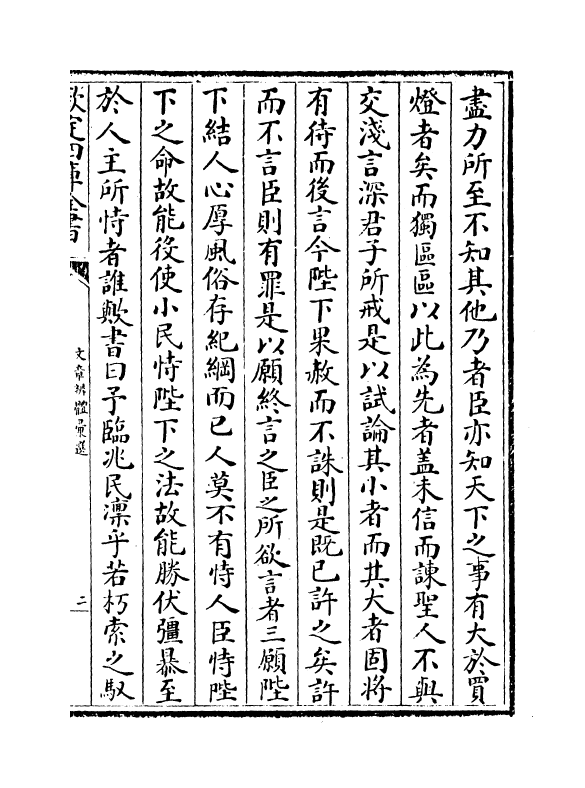 盡力所至不知其他乃者臣亦知天下之事有大於買
燈者矣而獨區區以此為先者蓋未信而諫聖人不與
交淺言深君子所戒是以試論其小者而其大者固將
有待而後言今陛下果赦而不誅則是既已許之矣許
而不言臣則有罪是以願終言之臣之所欲言者三願陛
下結人心厚風俗存紀綱而已人莫不有恃人臣恃陛
下之命故能役使小民恃陛下之法故能勝伏彊暴至
於人主所恃者誰歟書曰予臨兆民凜乎若朽索之馭
欽定四庫全書
文章辨體彙選
二